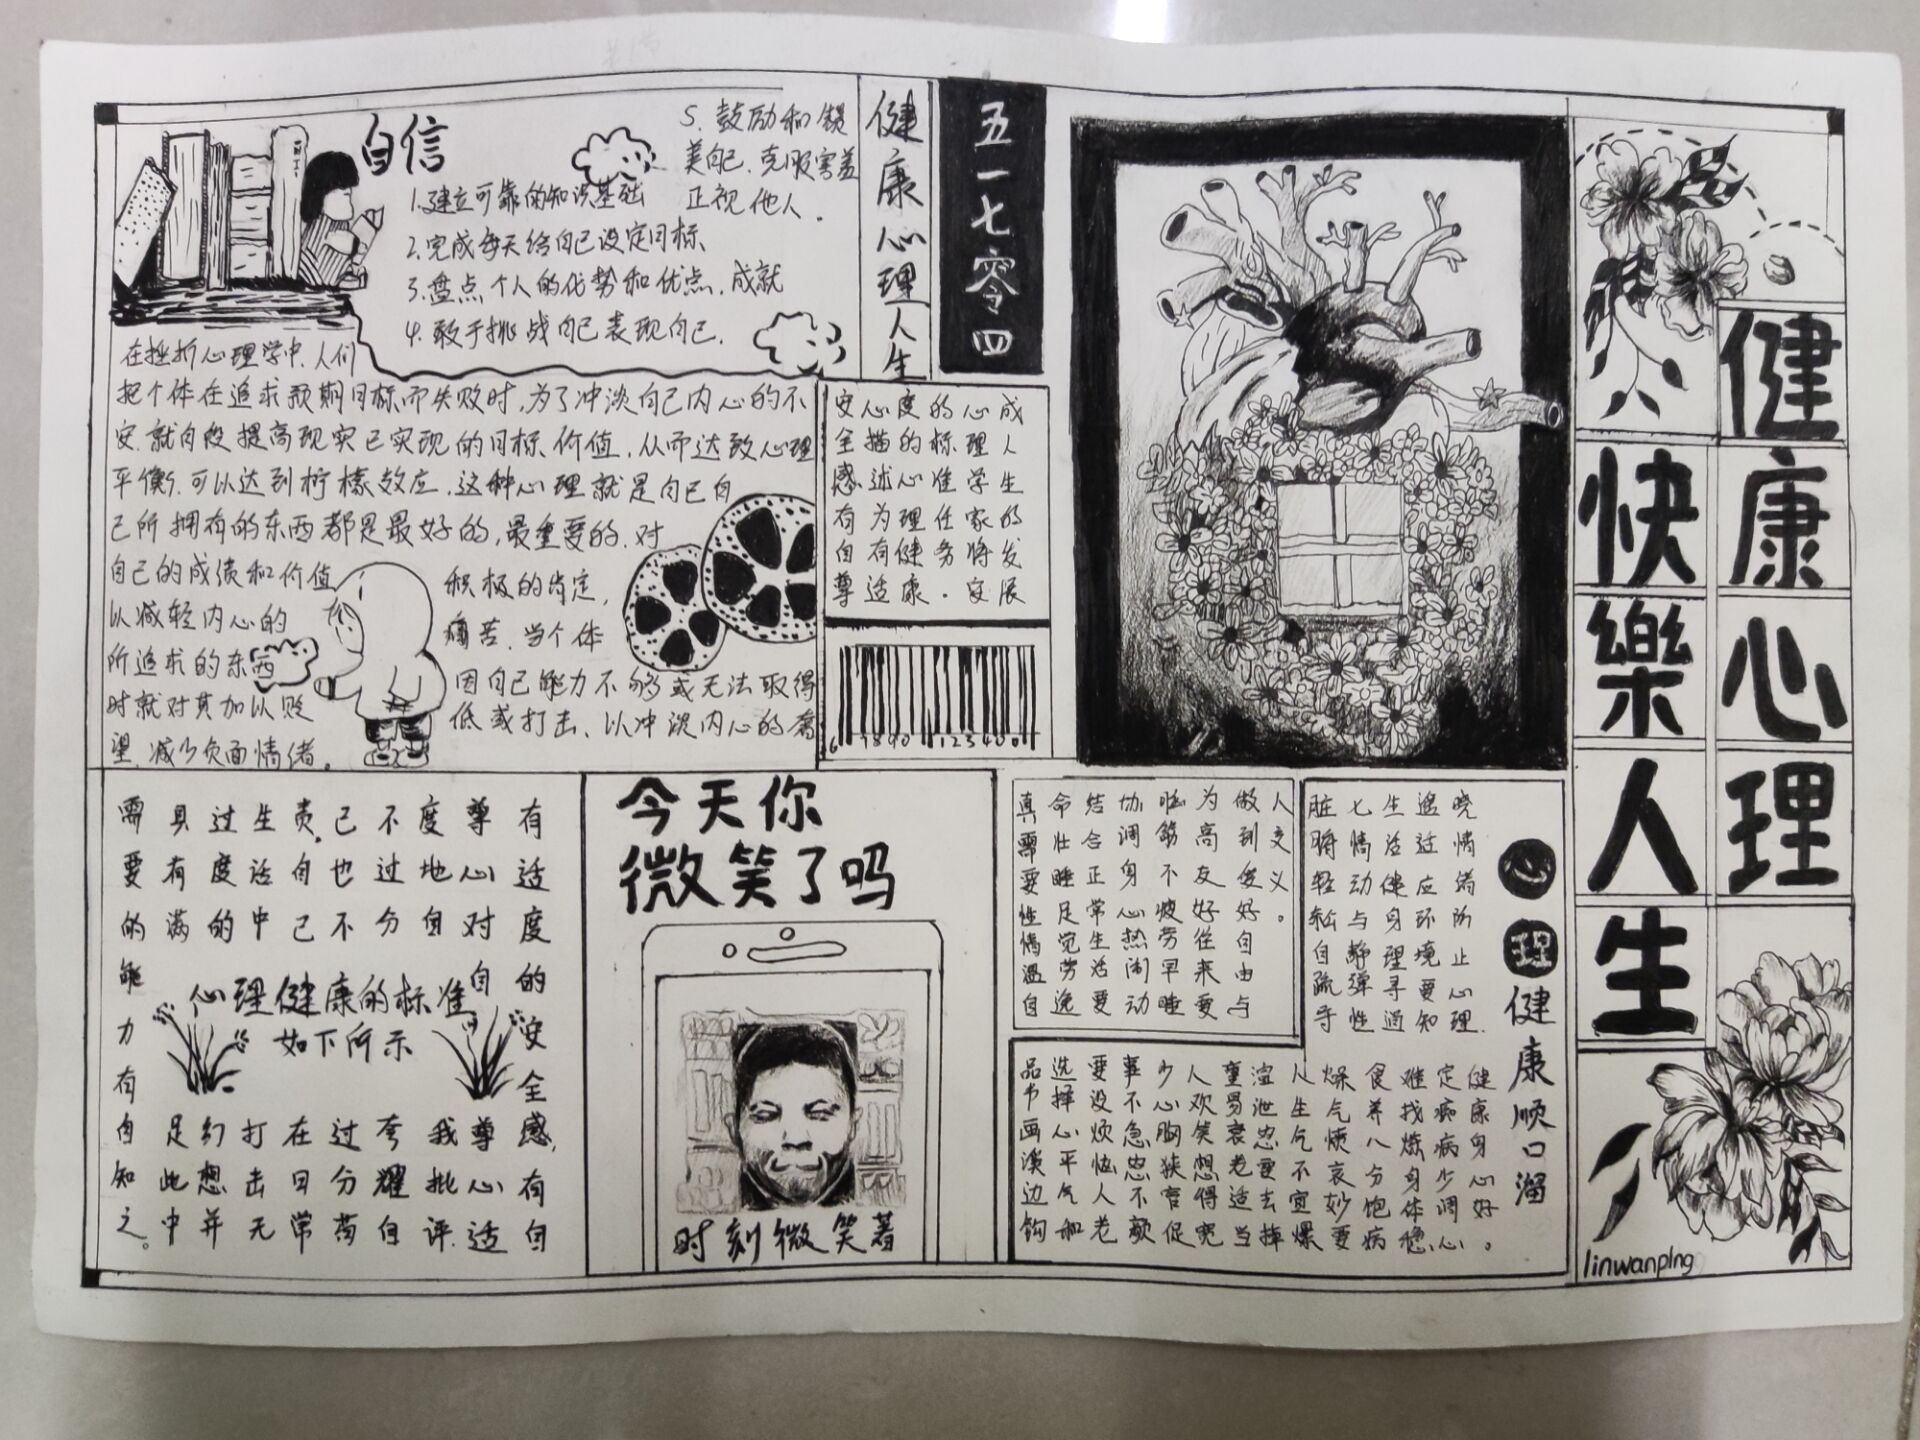 自信
1.建立可靠的知识基础
2.完成每天给自己设定目标
3.盘点个人的优势和优点,成就
4.敢于挑战自己表现自己.
5.鼓励和赞
美自己,克服害羞
正视他人.
在挫折心理学中,人们
把个体在追求预期目标而失败时,为了冲淡自己内心的不
安.就自段提高现实已实现的目标.价值,从而达致心理
平衡.可以达到柠檬效应.这种心理就是自己自
己所拥有的东西都是最好的,最重要的.对
自己的成绩和价值
积极的肯定,
以减轻内心的
痛苦.当个体
所追求的东西
因自己能力不够或无法取得
时就对其加以贬
低或打击、以冲淡内心的
望.减少负面情绪。
健康心理人生
五一七零四
成人生的发展
心理学家将安
的标准任务.
度的心理健康
心描述为有适
安全感有自尊
6 7890 123400
健康心理
快樂人生
有适度的安全感,有自
尊心对自我尊心适
度地分自批评.
不过分夸耀自
己也不过分苛
责自己在日常
生活中打击无
过度的幻想并
具有满足此中
需要的能力有自知之。
心理健康的标准
如下所示
今天你
微笑了吗
时刻微笑着
心理健康顺口溜
晓情绪所止心理.
适适应环境要知
生活健身理寻通
七情动与静弹性
脏腑轻松自疏导
人交义。
做到俊好自由与
为高友好往来要
脑筋不疲劳早睡
协调身心热闹动
结合正常生活要
命壮睡足觉劳逸
真需要性情温自
健康身心好。
定痴病少调心
难找炼身体稳
食养八分饱病
燥气愤哀妙要
人生气不宜爆
渲泄忠重去摔
重易衰老适当
人欢笑想得宽
少心胸狭窄促
事不急忠不歉
要没烦恼人老
选择心平气和
品书画溪边钩
linwanping